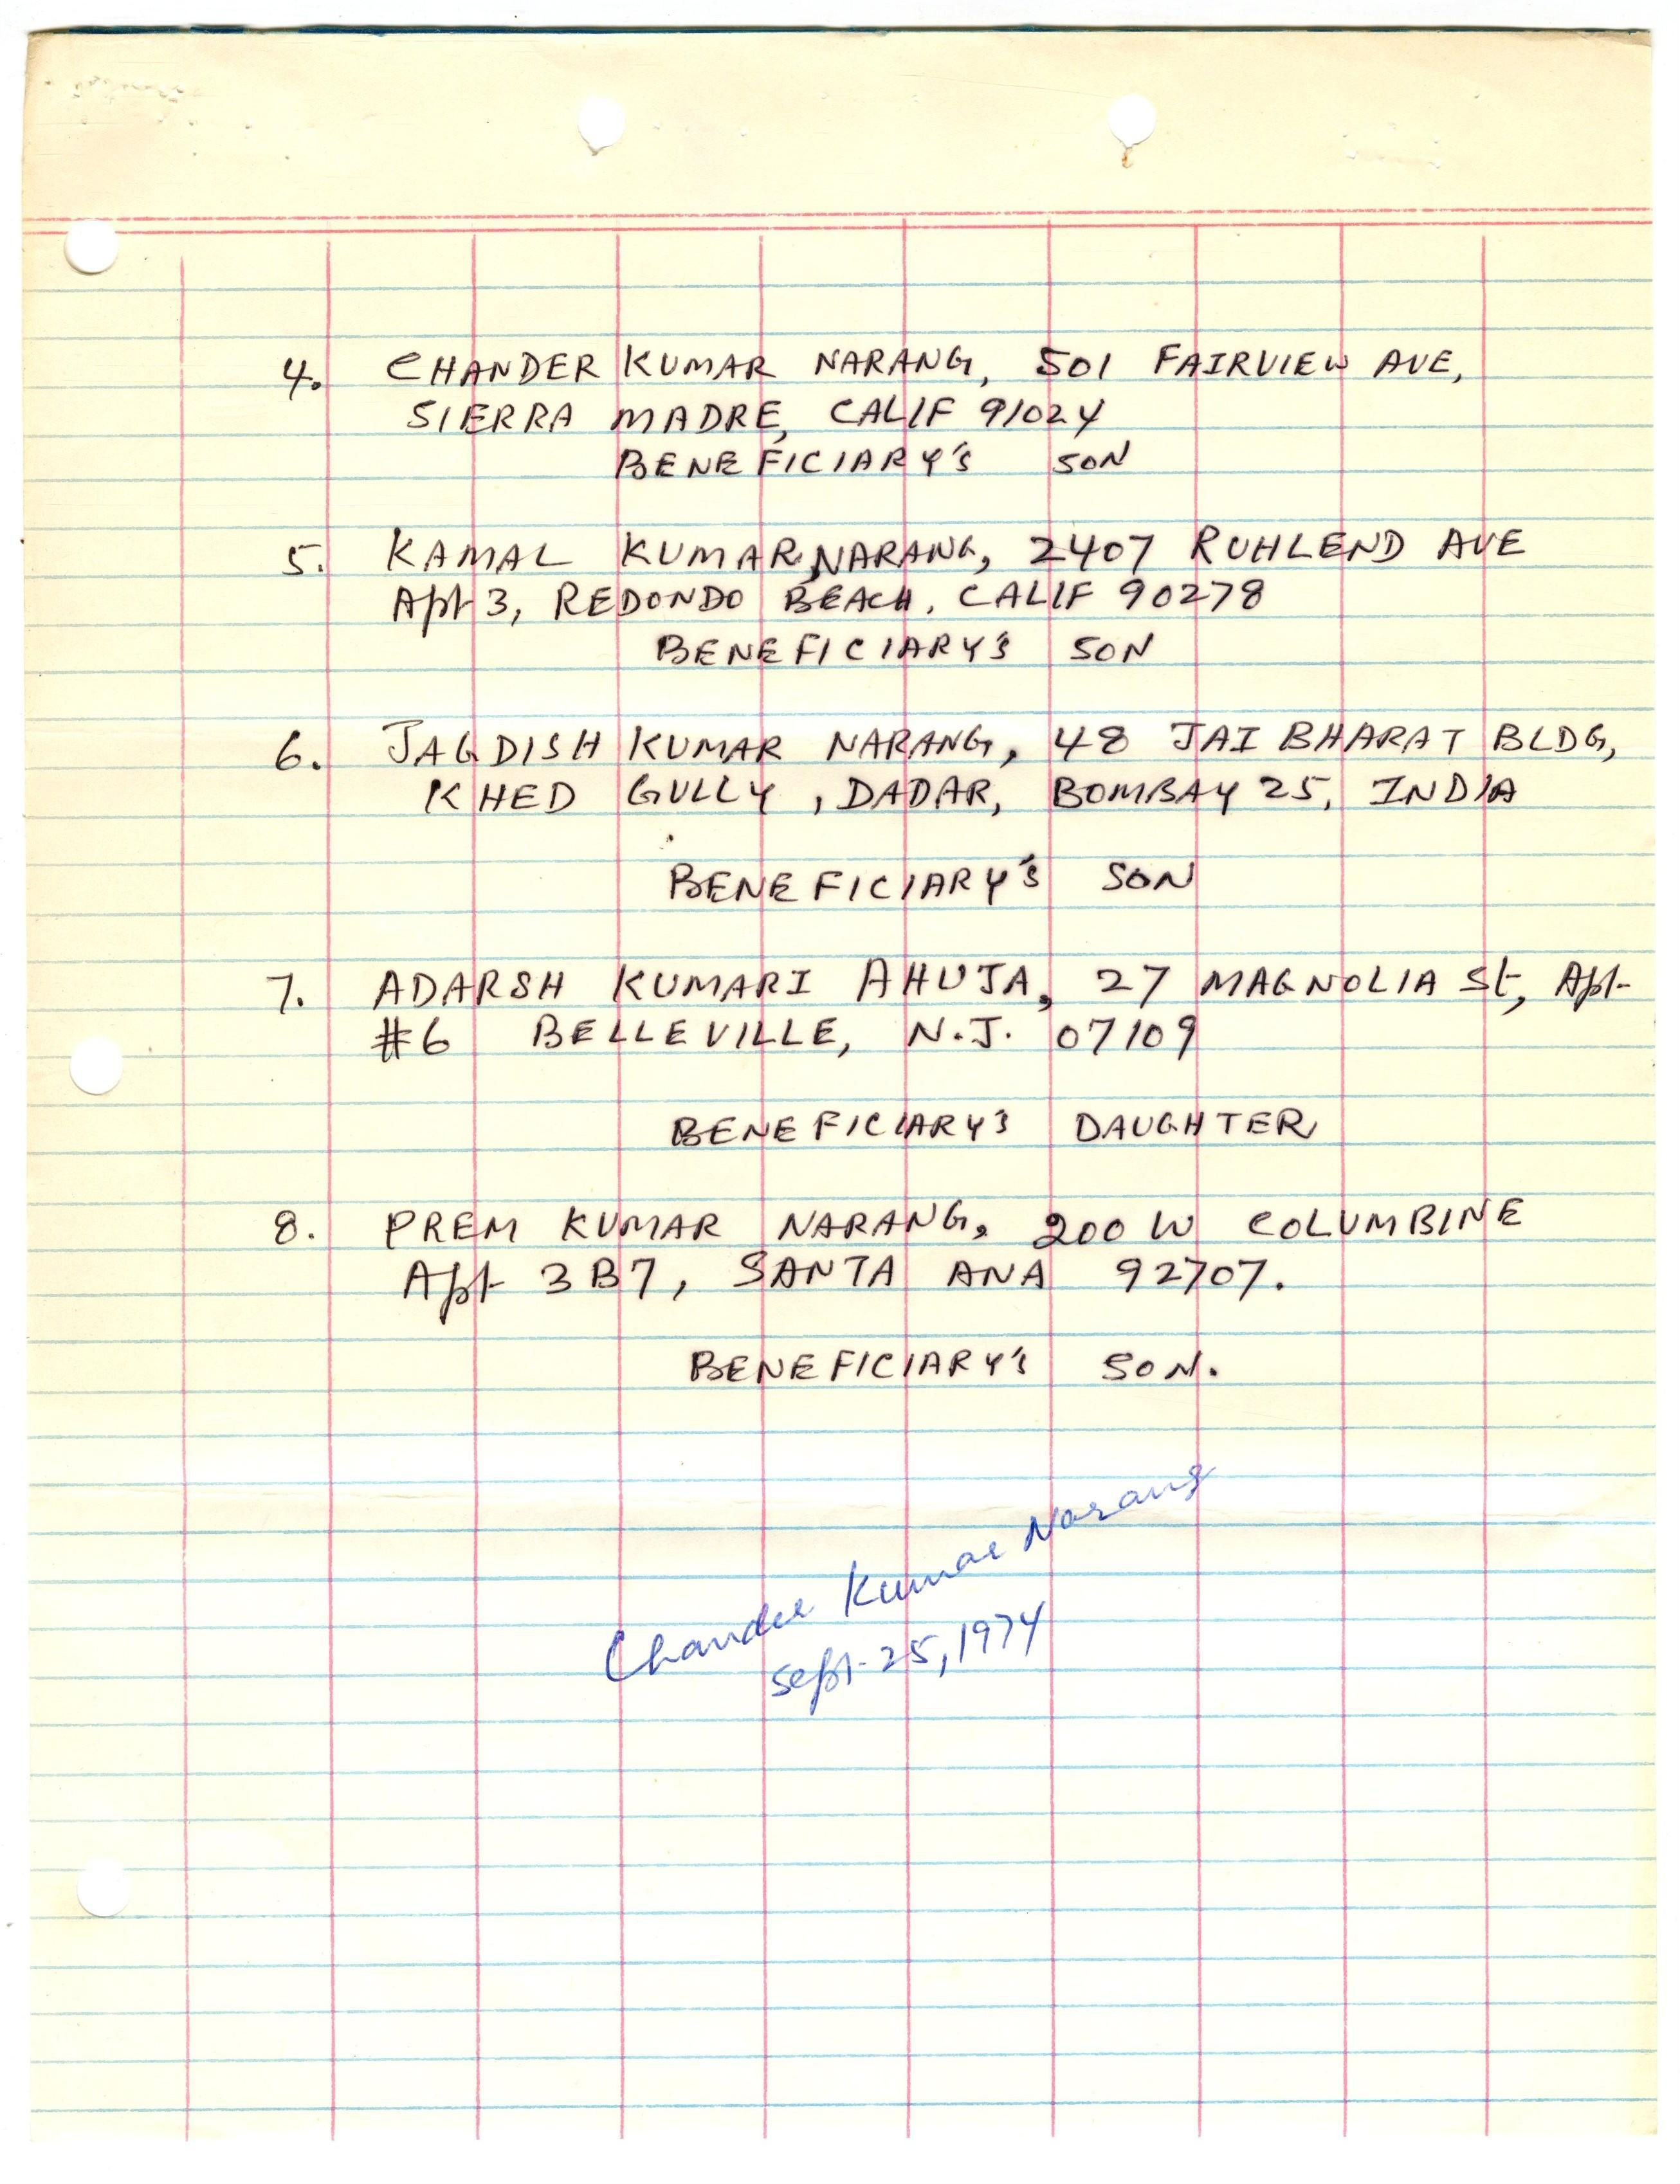 4. CHANDER KUMAR NARANG, 501 FAIRVIEW AVE,
SIERRA MADRE, CALIF 91024
BENEFICIARY'S SON
5. KAMAL KUMAR NARANG, 2407 RUHLEND AVE
Apt 3, REDONDO BEACH, CALIF 90278
BENEFICIARY'S SON
6. JAGDISH KUMAR NARANG, 48 JAI BHARAT BLDG,
KHED GULLY, DADAR, BOMBAY 25, INDIA
BENEFICIARY'S SON
7. ADARSH KUMARI AHUJA, 27 MAGNOLIA St, Apt-
#6 BELLEVILLE, N.J. 07109
BENEFICIARY'S DAUGHTER
8. PREM KUMAR NARANG, 200 W COLUMBINE
Apt 3B7, SANTA ANA 92707.
BENEFICIARY'S SON.
Chander Kumar Narang
Sept-25, 1974